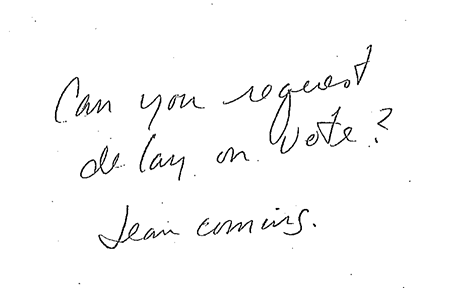 Can you request
delay on vote?
Jean coming.